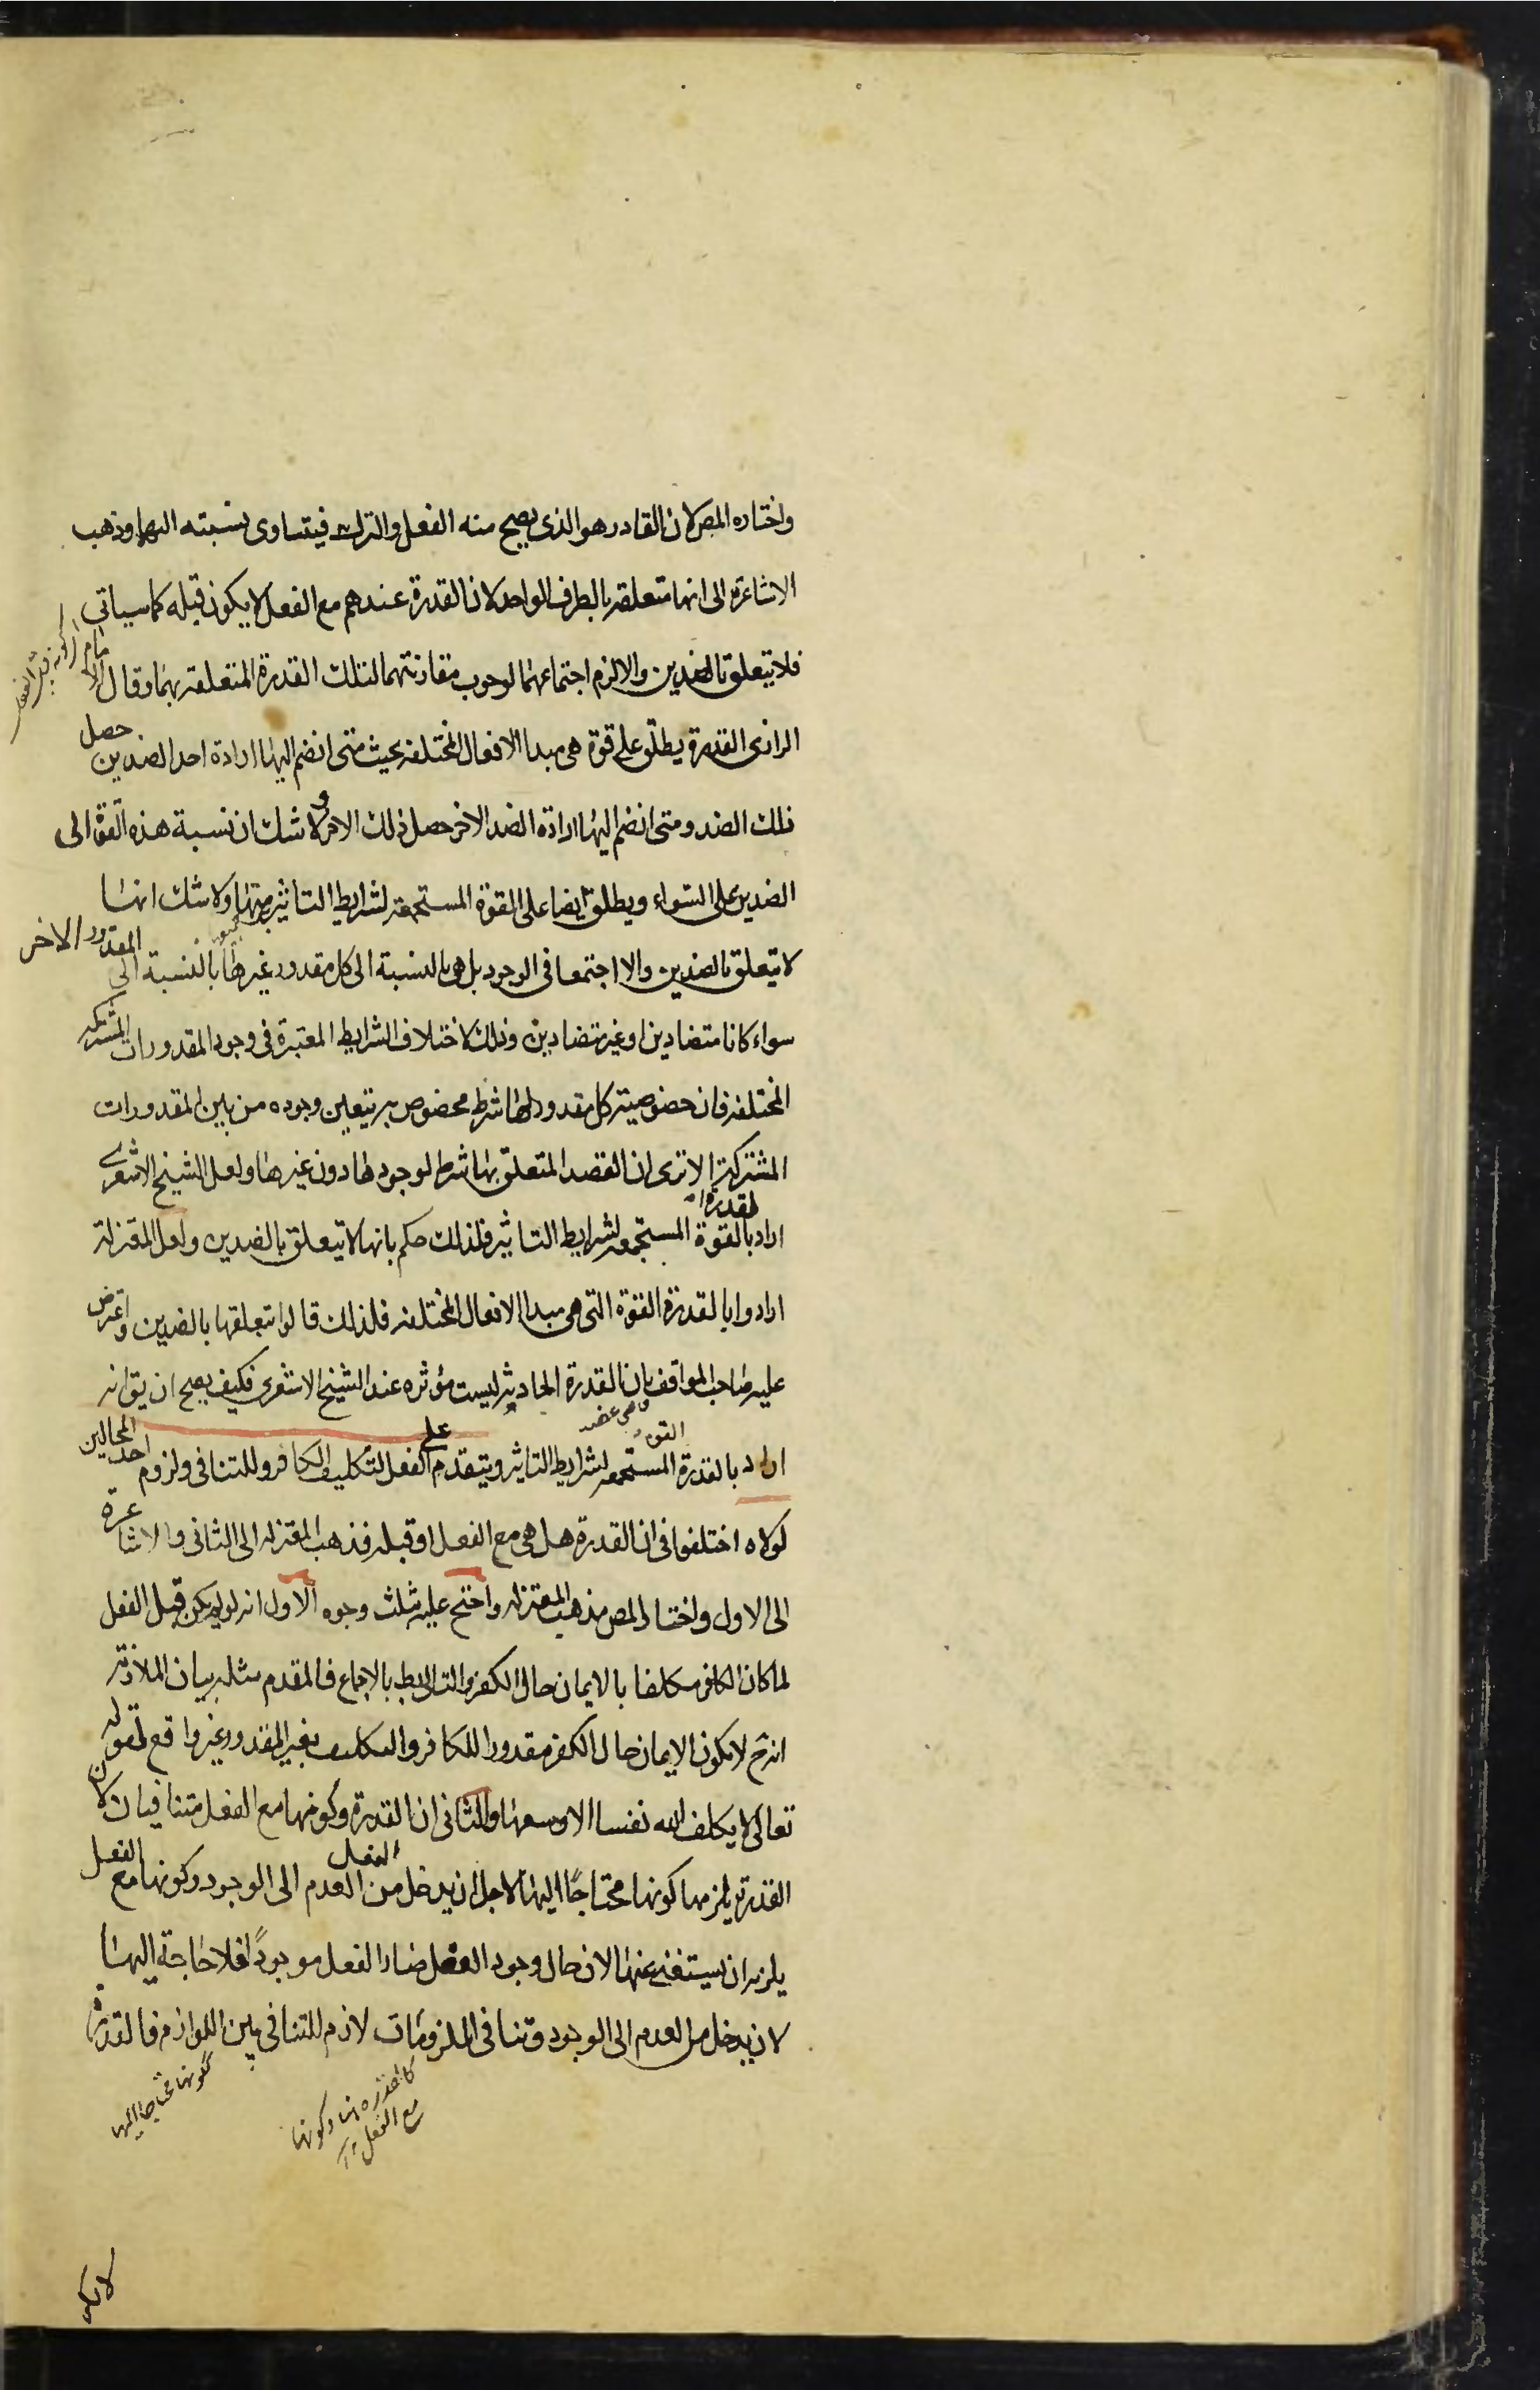 واختاره المص لان القادر هو الذى يصح منه الفعل والترك فيتساوى نسبته اليهما وذهب
الاشاعرة الى انها متعلقة بالطرف الواحد لان القدرة عندهم مع الفعل لا يكون قبله كما سياتى
فلا يتعلق بالضدين والا لزم اجتماعهما لوجوب مقارنتهما لتلك القدرة المتعلقة بهما وقال الامام
الرازى القدرة يطلق على قوة هى مبدا الافعال المختلفة بحيث متى انضم اليها ارادة احد الضدين حصل
ذلك الضد ومتى انضم اليها ارادة الضد الاخر حصل ذلك الاخر ولا شك ان نسبة هذه القوة الى
الضدين على السواء ويطلق ايضا على القوة المستجمعة لشرايط التاثير ولا شك انها
لا يتعلق بالضدين والا اجتمعا فى الوجود بل هى بالنسبة الى كل مقدور غيرها بالنسبة الى المقدور الاخر
سواء كانا متضادين او غير متضادين وذلك لاختلاف الشرايط المعتبرة فى وجود المقدورات المشتركة
المختلفة فان خصوصية كل مقدور لها شرط مخصوص به يتعين وجوده من بين المقدورات
المشتركة الا ترى ان القصد المتعلق بها شرط لوجودها دون غيرها ولعل الشيخ الاشعرى
اراد بالقدرة القوة المستجمعة لشرايط التاثير فلذلك حكم بانها لا يتعلق بالضدين ولعل المعتزلة
ارادوا بالقدرة القوة التى هى مبدا الافعال المختلفة فلذلك قالوا بتعلقها بالضدين واعترض
عليه صاحب المواقف بان القدرة الحادثة ليست مؤثرة عند الشيخ الاشعرى فكيف يصح ان يق انه
اراد بالقدرة القوة المستجمعة لشرايط التاثير ويتقدم على الفعل لتكليف الكافر وللتنافى ولزوم احد المحالين
لولاه اختلفوا فى ان القدرة هل هى مع الفعل او قبله فذهب المعتزلة الى الثانى والاشاعرة
الى الاول واختار المص مذهب المعتزلة واحتج عليه بثلث وجوه الاول انه لو لم يكن قبل الفعل
لما كان الكافر مكلفا بالايمان حال الكفر والتالى بط بالاجماع فالمقدم مثله بيان الملازمة
انه ح لا يكون الايمان حال الكفر مقدورا للكافر والتكليف بغير المقدور غير واقع لقوله
تعالى لا يكلف الله نفسا الا وسعها والثانى ان القدرة وكونها مع الفعل متنافيان لان
القدرة يلزمها كونها محتاجا اليها لاجل ان يدخل الفعل من العدم الى الوجود وكونها مع الفعل
يلزمه ان يستغنى عنها لان حال وجود الفعل صار الفعل موجودا فلا حاجة اليها
لان يدخل من العدم الى الوجود وتنافى الملزومات لازم للتنافى بين اللوازم فالقدرة
كونها محتاجا اليها
كالقدرة هنا وكونها
مع الفعل